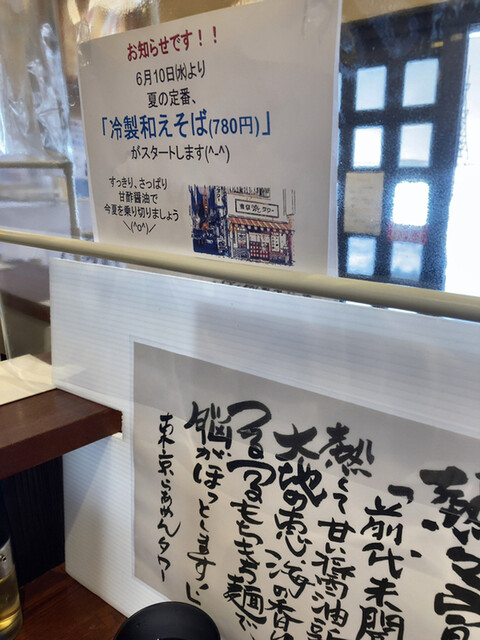 お知らせです！！
6月10日(水)より
夏の定番、
「冷製和えそば(780円)」
がスタートします(^-^)
すっきり、さっぱり
甘酢醤油で
今夏を乗り切りましょう
＼(^o^)／
「前代未聞
熱くて甘い醤油
大地の恵、海の香
つるつるもちもち麺で
脳がほっとします。」
東京らあめんタワー